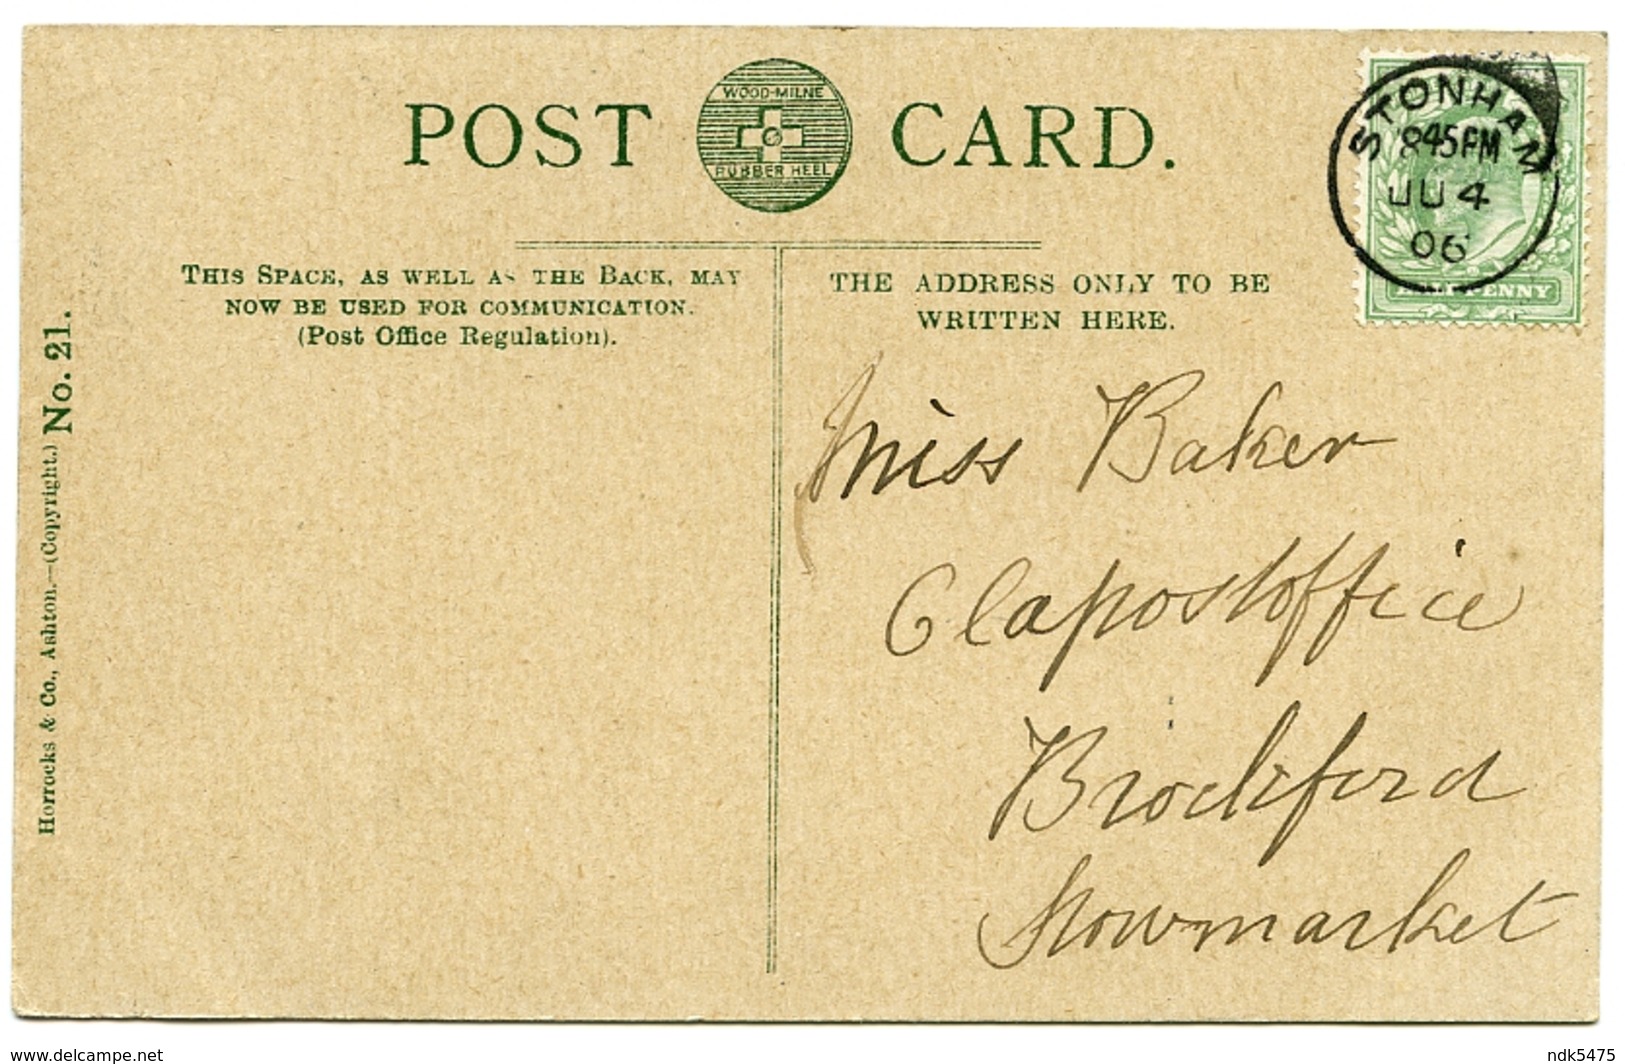 POST CARD.
WOOD-MILNE
RUBBER HEEL
STONHAM
845PM
JU 4
06
HALFPENNY
THIS SPACE, AS WELL AS THE BACK, MAY
NOW BE USED FOR COMMUNICATION.
(Post Office Regulation).
THE ADDRESS ONLY TO BE
WRITTEN HERE.
Horrocks & Co., Ashton.—(Copyright.) No. 21.
Miss Baker
Clapostoffice
Brockford
Stowmarket
www.delcampe.net
ndk5475